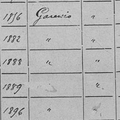 1876 Garancis "
1882 " "
1888 " "
1889 " "
1896 " "